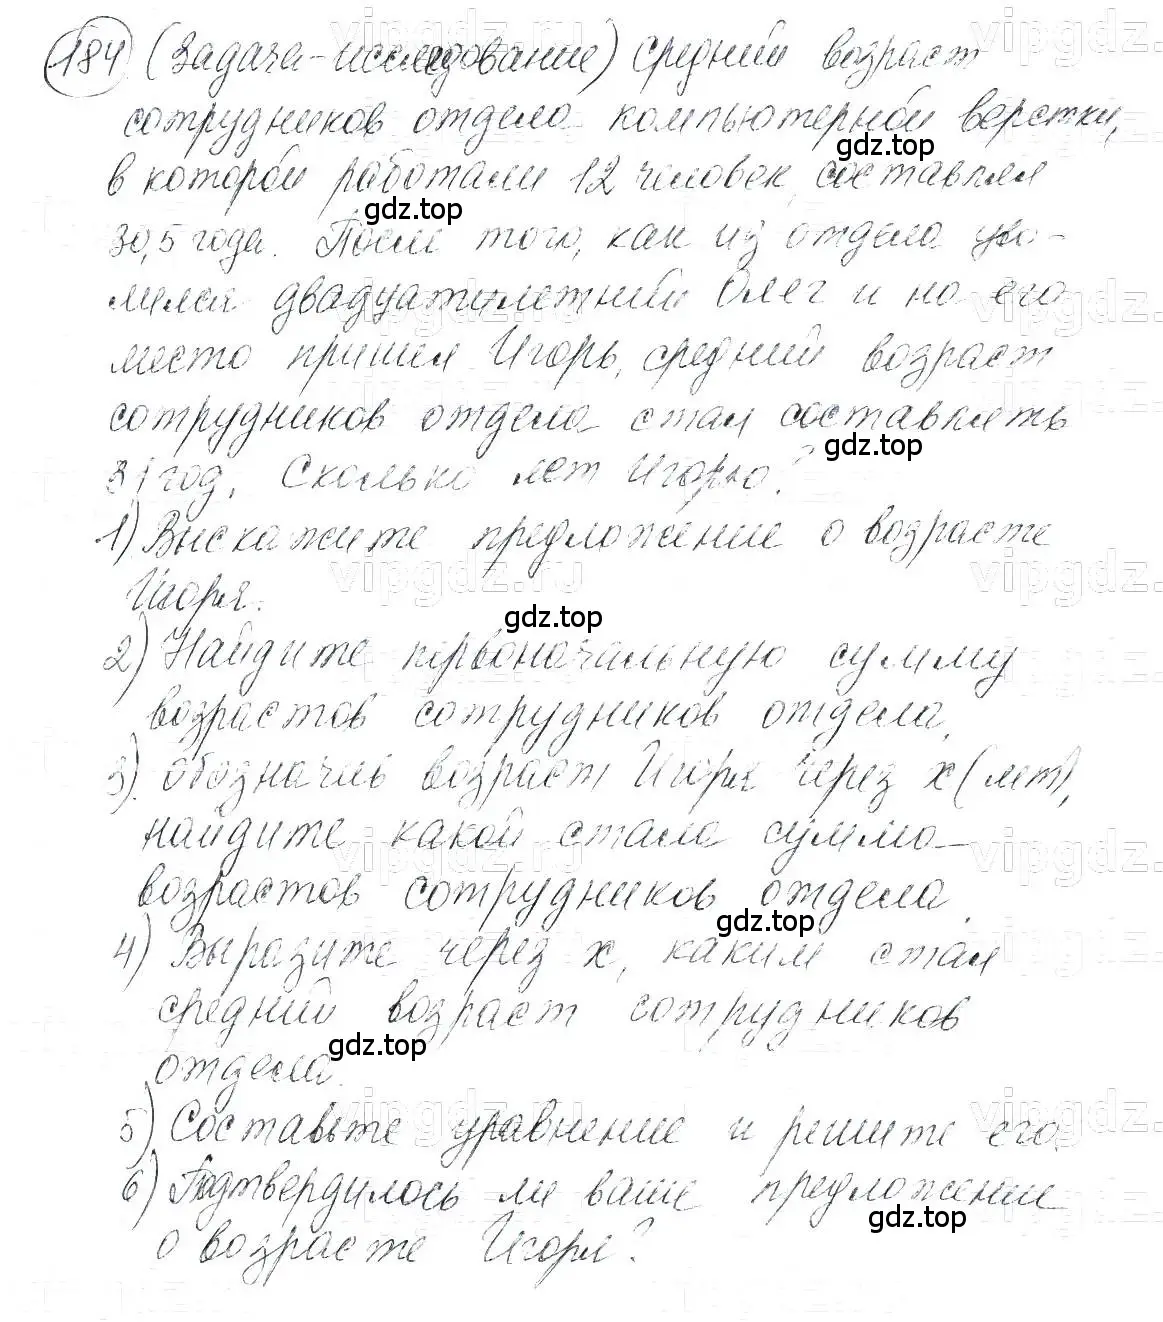 184 (Задача-исследование) Средний возраст
сотрудников отдела компьютерной верстки,
в которой работали 12 человек, составлял
30,5 года. После того, как из отдела уво-
лился двадцатилетний Олег и на его
место пришел Игорь, средний возраст
сотрудников отдела стал составлять
31 год. Сколько лет Игорю?
1) Выскажите предложение о возрасте
Игоря.
2) Найдите первоначальную сумму
возрастов сотрудников отдела.
3) обозначив возраст Игоря через x (лет),
найдите какой стала сумма
возрастов сотрудников отдела.
4) Выразите через x, каким стал
средний возраст сотрудников
отдела.
5) Составьте уравнение и решите его.
6) Подтвердилось ли ваше предложение
о возрасте Игоря?
gdz.top
gdz.top
gdz.top
gdz.top
gdz.top
gdz.top
gdz.top
vipgdz.ru